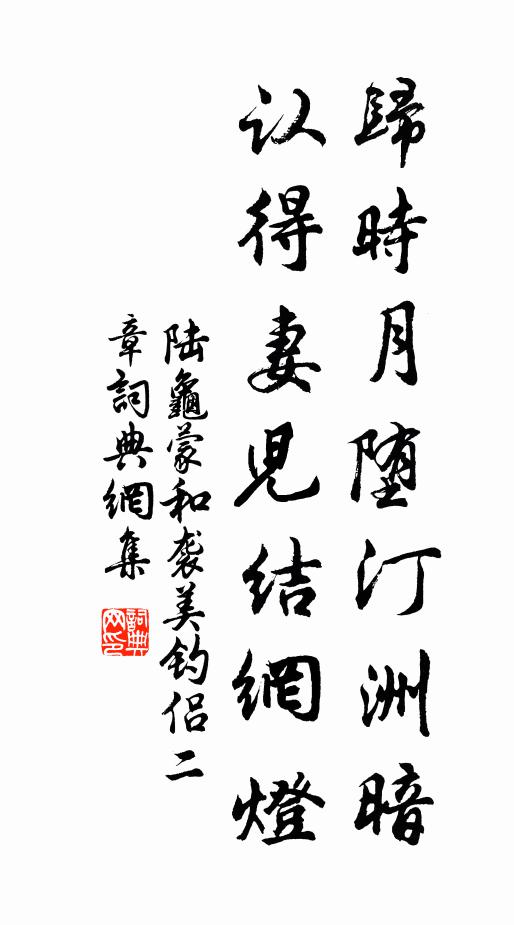 歸時月堕汀洲暗
认得妻児結網燈
陆龜蒙和袭美钓侣二
章詞典網集
詞典
网印